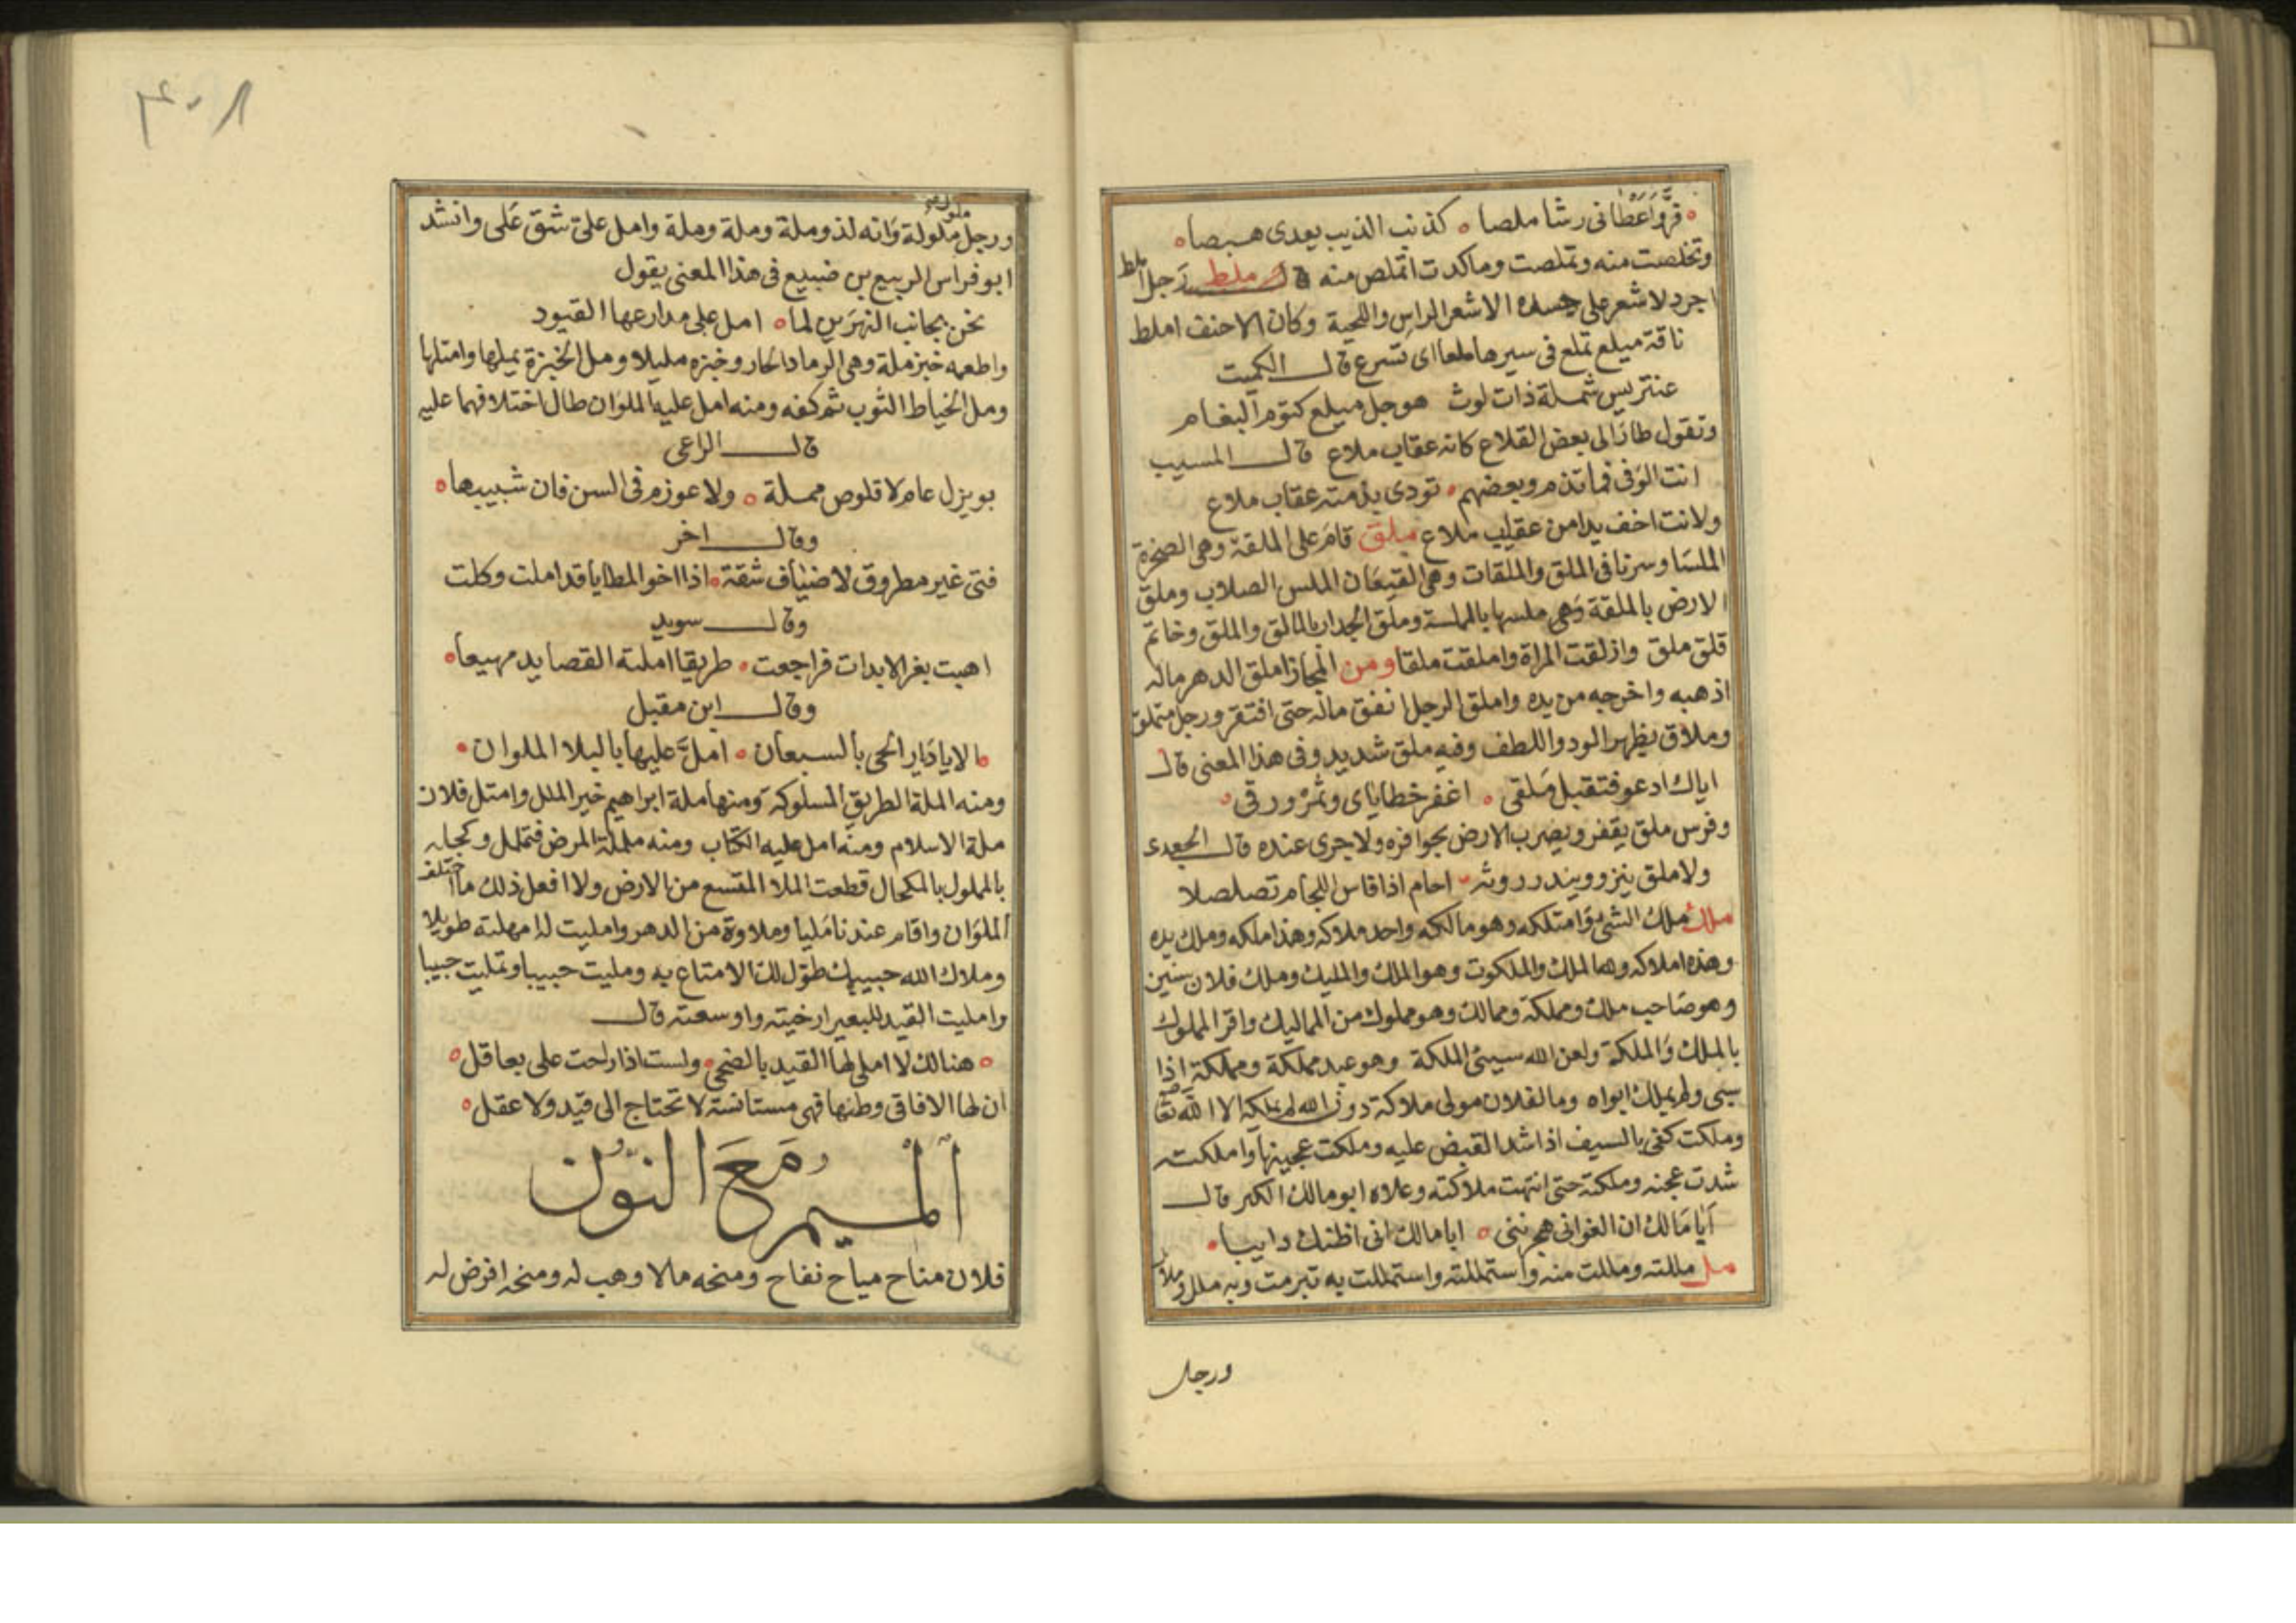 فرّ واعطانى رشا ملصا كذنب الذيب يعدى هبصا
وتخلصت منه وتملصت وماكدت اتملص منه ملط رجل املط
اجرد لا شعر على جسده الا شعر الراس واللحية وكان الاحنف املط
ناقة ميلع تملع فى سيرها ملعا اى تسرع قال الكميت
عنتريس شملة ذات لوث هوجل ميلع كتوم البغام
وتقول طار الى بعض القلاع كانه عقاب ملاع قال المسيب
انت الوفى فما تذم وبعضهم تودى بذمته عقاب ملاع
ولانت اخف يدا من عقاب ملاع ملق قام على الملقة وهى الصخرة
الملسا وسرنا فى الملق والملقات وهى القيعان الملس الصلاب وملق
الارض بالملقة وهى ملسها بالملسة وملق الجدار بالمالق والملق وخاتم
قلق ملق وازلقت المراة واملقت ملقا ومن المجاز املق الدهر ماله
اذهبه واخرجه من يده واملق الرجل انفق ماله حتى افتقر ورجل متملق
وملاق يظهر الود واللطف وفيه ملق شديد وفى هذا المعنى قال
اياك ادعو فتقبل ملقى اغفر خطاياى وثمر ورقى
وفرس ملق يقفز ويضرب الارض بحوافره ولا جرى عنده قال الجعدى
ولا ملق ينزو ويندر روثه احام اذا فاس اللجام تصلصلا
ملك ملك الشى وامتلكه وهو مالكه واحد ملاكه وهذا ملكه وملك يده
وهذه املاكه وهنا الملك والملكوت وهو الملك والمليك وملك فلان سنين
وهو صاحب ملك ومملكة وممالك وهو مملوك من المماليك واقر المملوك
بالملك والملكة ولعن الله سيئ الملكة وهو عبد مملكة ومملكة اذا
سبى ولم يملك ابواه وما لفلان مولى ملاكة دون الله لم يملكه الا الله تعا
وملكت كفى بالسيف اذا شد القبض عليه وملكت عجينها واملكت
شدت عجنه وملكته حتى انتهت ملاكته وعلاه ابو مالك الكبر قال
ايا مالك ان الغوانى هجرننى ابا مالك انى اظنك دايبا
مل مللته ومللت منه واستمللته واستمللت به تبرمت وبه ملل وملال
ورجل
ورجل ملولة وانه لذو ملة وملة وملة وامل على شق على وانشد
ابو فراس الربيع بن ضبيع فى هذا المعنى يقول
نحن بجانب النهرين لما امل على مدارعها القيود
واطعمه خبز ملة وهى الرماد الحار وخبزه مليلا ومل الخبزة يملها وامتلها
ومل الخياط الثوب ثم كفه ومنه امل عليه الملوان طال اختلافهما عليه
قال الراعى
بويزل عام لا قلوص مملة ولا عوزم فى السن فان شبيبها
وقال اخر
فتى غير مطروق لاضياف شقة اذا اخو المطايا قد املت وكلت
وقال سويد
اهبت بغر الابدات فراجعت طريقا املته القصايد مهيعا
وقال ابن مقبل
الا يا ديار الحى بالسبعان امل عليها بالبلا الملوان
ومنه الملة الطريق المسلوكة ومنها ملة ابراهيم خير الملل وامتل فلان
ملة الاسلام ومنه امل عليه الكتاب ومنه ململة المرض فتململ وكحله
بالملمول بالمكحال قطعت الملا المتسع من الارض ولا افعل ذلك ما اختلف
الملوان واقام عندنا مليا وملاوة من الدهر وامليت له امهلته طويلا
وملاك الله حبيبك طول لك الامتاع به ومليت حبيبا وتمليت حبيبا
وامليت القيد للبعير ارخيته واوسعته قال
هنالك لا املى لها القيد بالضحى ولست اذا راحت على بعاقل
ان لها الافاقى وطنها فهى مستانسة لا تحتاج الى قيد ولا عقل
الميم مع النون
فلان مناح مياح نفاح ومنحه مالا وهب له ومنحه اقرض له